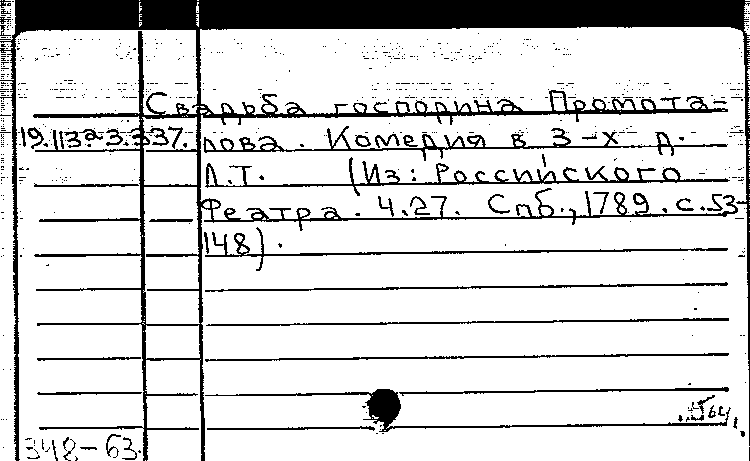 Свадьба господина Промота=
19.113a.3.337. лова. Комедия в 3-х д.
Л.Т. (Из: Российского
Феатра. Ч.27. Спб., 1789. с.53-
148).
348-63.